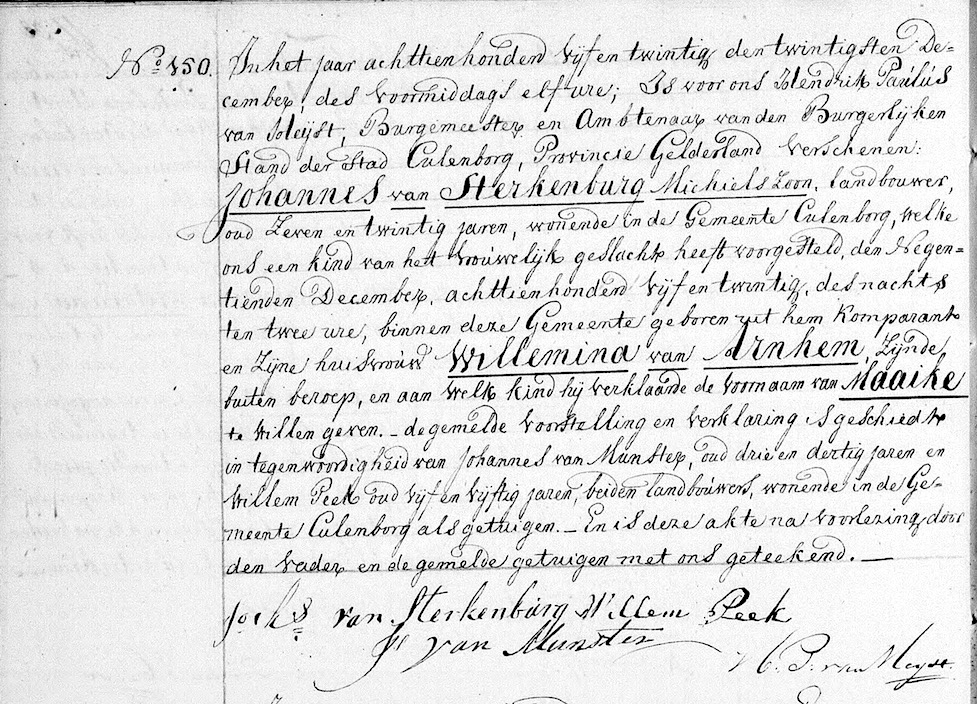 No. 150. In het jaar achttienhonderd vijf en twintig den twintigsten De=
cember, des voormiddags elf ure; Is voor ons Hendrik Paulus
van Heyst, Burgemeester en Ambtenaar van den Burgerlijken
Stand der Stad Culenborg, Provincie Gelderland verschenen:
Johannes van Sterkenburg Michiels Zoon, landbouwer,
oud Zeven en twintig jaren, wonende in de Gemeente Culenborg, welke
ons een kind van het vrouwelijk geslacht heeft voorgesteld, den Negen=
tienden December, achttienhonderd vijf en twintig, des nachts
ten twee ure, binnen deze Gemeente geboren uit hem Komparant
en Zijne huisvrouw Willemina van Arnhem, Zijnde
buiten beroep, en aan welk kind hij verklaarde de voornaam van Maaike
te willen geven. _ de gemelde voorstelling en verklaring is geschiedt
in tegenwoordigheid van Johannes van Munster, oud drie en dertig jaren en
Willem Peek oud vijf en vijftig jaren, beiden landbouwers, wonende in de Ge=
meente Culenborg als getuigen. _ En is deze akte na voorlezing, door
den Vader en de gemelde getuigen met ons geteekend. _
Johs van Sterkenburg Willem Peek
Js van Munster
H. P. van Heyst.